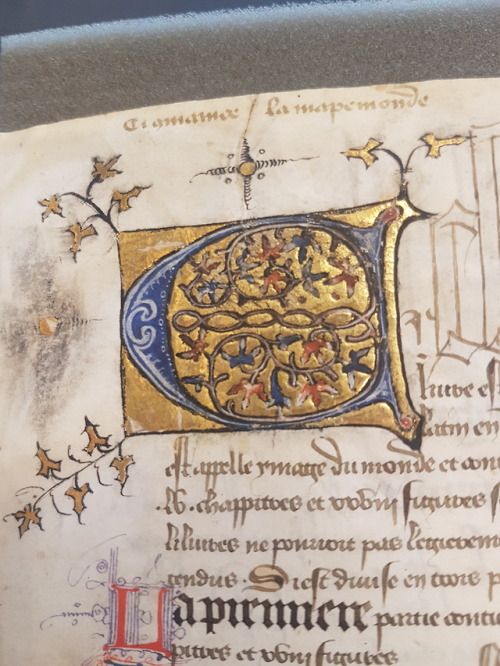 Ci commance la mapemonde
E
livre est
latin en
est appelle ymage du monde et cont
.lv. chappitres et xxviii figures s
li livres ne pourroit pas legierem
tendus. Si est divise en trois p
La premiere partie conti
pitres et xxviii figures.